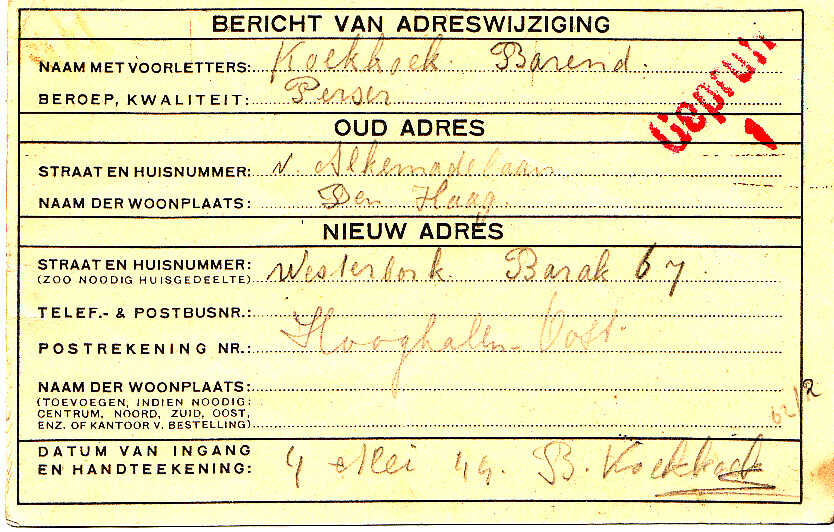 BERICHT VAN ADRESWIJZIGING
NAAM MET VOORLETTERS: Koekkoek. Barend.
BEROEP, KWALITEIT: Perser
Geprüft
1
OUD ADRES
STRAAT EN HUISNUMMER: v. Alkemadelaan
NAAM DER WOONPLAATS: Den Haag.
NIEUW ADRES
STRAAT EN HUISNUMMER: Westerbork. Barak 67.
(ZOO NOODIG HUISGEDEELTE)
TELEF.- & POSTBUSNR.:
POSTREKENING NR.: Hooghalen-Oost.
NAAM DER WOONPLAATS:
(TOEVOEGEN, INDIEN NOODIG:
CENTRUM, NOORD, ZUID, OOST,
ENZ. OF KANTOOR V. BESTELLING)
DATUM VAN INGANG
EN HANDTEEKENING: 4 Mei 44. B. Koekkoek